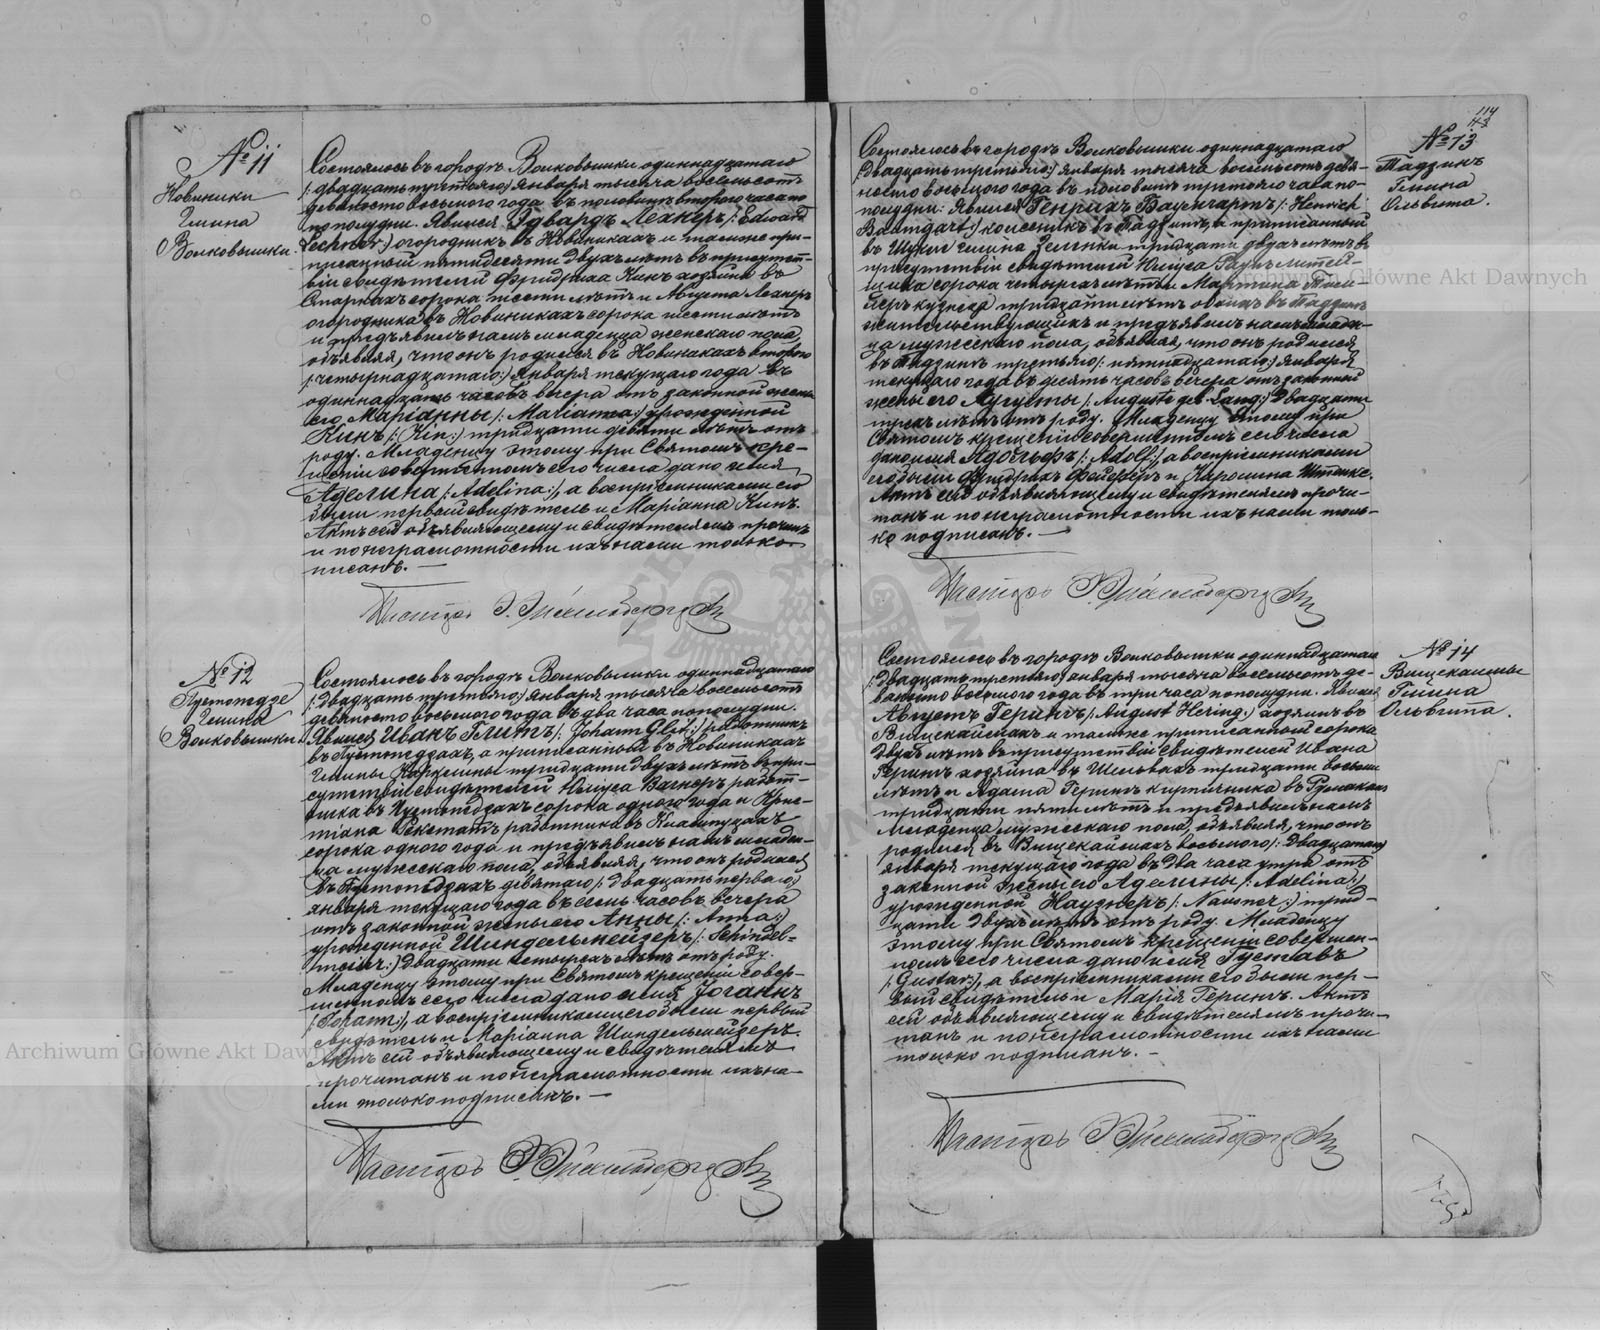 № 11
Новиники
Гмина
Волковышки.
Состоялось въ городѣ Волковышки одиннадцатаго
/: двадцать третьяго:) Января тысяча восемьсотъ
девяносто восьмого года въ половинѣ второго часа по
пополудни. Явился Эдвардъ Лехнеръ /: Edward
Lechner:) огородникъ въ Новиникахъ и тамже при-
писанный пятидесяти двухъ лѣтъ въ присутст-
віи свидѣтелей Фридриха Кинъ хозяина въ
сорока шести лѣтъ и Августа Лехнеръ
огородника въ Новиникахъ сорока шести лѣтъ
и предъявилъ намъ младенца женскаго пола,
объявляя, что онъ родился въ Новиникахъ второго
/: четырнадцатаго:) Января текущаго года въ
одиннадцать часовъ вечера отъ законной жены
его Маріанны /: Marianna:) урожденной
Кинъ /: Kin:) тридцати девяти лѣтъ отъ
роду. Младенцу этому при Святомъ кре-
щеніи совершенномъ сего числа дано имя
Аделина /: Adelina:), а воспріемниками его
были первый свидѣтель и Маріанна Кинъ.
Актъ сей объявляющему и свидѣтелямъ прочитанъ
и по неграмотности ихъ нами только
писанъ. —
Пасторъ
№ 12
Пустопедзе
Гмина
Волковышки.
Состоялось въ городѣ Волковышки одиннадцатаго
/: двадцать третьяго:) Января тысяча восемьсотъ
девяносто восьмого года въ два часа пополудни.
Явился Иванъ Глитъ /: Johann Glit:) работникъ
въ Пустопедзахъ, а приписанный въ Новиникахъ
Гмины тридцати двухъ лѣтъ въ при-
сутствіи свидѣтелей Юліуса Вагнеръ работ-
ника въ Пустопедзахъ сорока одного года и Крис-
тіана работника въ
сорока одного года и предъявилъ намъ младен-
ца мужескаго пола, объявляя, что онъ родился
въ Пустопедзахъ девятаго /: двадцать перваго:)
января текущаго года въ семь часовъ вечера
отъ законной жены его Анны /: Anna:)
урожденной Шиндельмейзеръ /: Schindel=
двадцати четырехъ лѣтъ отъ роду.
Младенцу этому при Святомъ крещеніи совер-
шенномъ сего числа дано имя Іоганнъ
/: Johann:), а воспріемниками его были первый
свидѣтель и Маріанна Шиндельмейзеръ.
Актъ сей объявляющему и свидѣтелямъ
прочитанъ и по неграмотности ихъ на-
ми только подписанъ. —
Пасторъ
114
№ 13
Тадзинъ
Гмина
Ольвита.
Состоялось въ городѣ Волковышки одиннадцатаго
/: двадцать третьяго:) Января тысяча восемьсотъ девя-
носто восьмого года въ половинѣ третьяго часа по-
полудни: Явился Генрихъ Баумгартъ /: Henrich
Baumgart:) колесникъ въ Тадзинѣ, а приписанный
въ гмина Зеленки тридцати двухъ лѣтъ въ
присутствіи свидѣтелей Юліуса литей-
щика сорока четырехъ лѣтъ и Мартина
кузнеца тридцати лѣтъ обоихъ въ Тадзинѣ
жительствующихъ и предъявилъ намъ младен-
ца мужескаго пола, объявляя, что онъ родился
въ Тадзинѣ третьяго /: пятнадцатаго:) Января
текущаго года въ десять часовъ вечера отъ законной
жены его Августы /: Auguste geb. Lang:) двадцати
трехъ лѣтъ отъ роду. Младенцу этому при
Святомъ крещеніи совершенномъ сего числа
дано имя Адольфъ /: Adolf:), а воспріемниками
его были Фридрихъ и Каролина
Актъ сей объявляющему и свидѣтелямъ прочи-
танъ и по неграмотности ихъ нами толь-
ко подписанъ. —
Пасторъ
№ 14
Вищекаймы
Гмина
Ольвита.
Состоялось въ городѣ Волковышки одиннадцатаго
/: двадцать третьяго:) января тысяча восемьсотъ де-
вяносто восьмого года въ три часа пополудни. Явился
Августъ Герингъ /: August Hering:) хозяинъ въ
Вищекаймахъ и тамже приписанный сорока
двухъ лѣтъ въ присутствіи свидѣтелей Ивана
Герингъ хозяина въ тридцати восьми
лѣтъ и Адама Герингъ кирпичника въ
тридцати пяти лѣтъ и предъявилъ намъ
младенца мужескаго пола, объявляя, что онъ
родился въ Вищекаймахъ восьмого /: двадцатаго:)
января текущаго года въ два часа утра отъ
законной жены его Аделины /: Adelina:)
урожденной Наузнеръ /: Nausner:) трид-
цати двухъ лѣтъ отъ роду. Младенцу
этому при Святомъ крещеніи совершен-
номъ сего числа дано имя Густавъ
/: Gustav:), а воспріемниками его были пер-
вый свидѣтель и Марія Герингъ. Актъ
сей объявляющему и свидѣтелямъ прочи-
танъ и по неграмотности ихъ нами
только подписанъ. —
Пасторъ
Archiwum Główne Akt Dawnych
Archiwum Główne Akt Dawnych